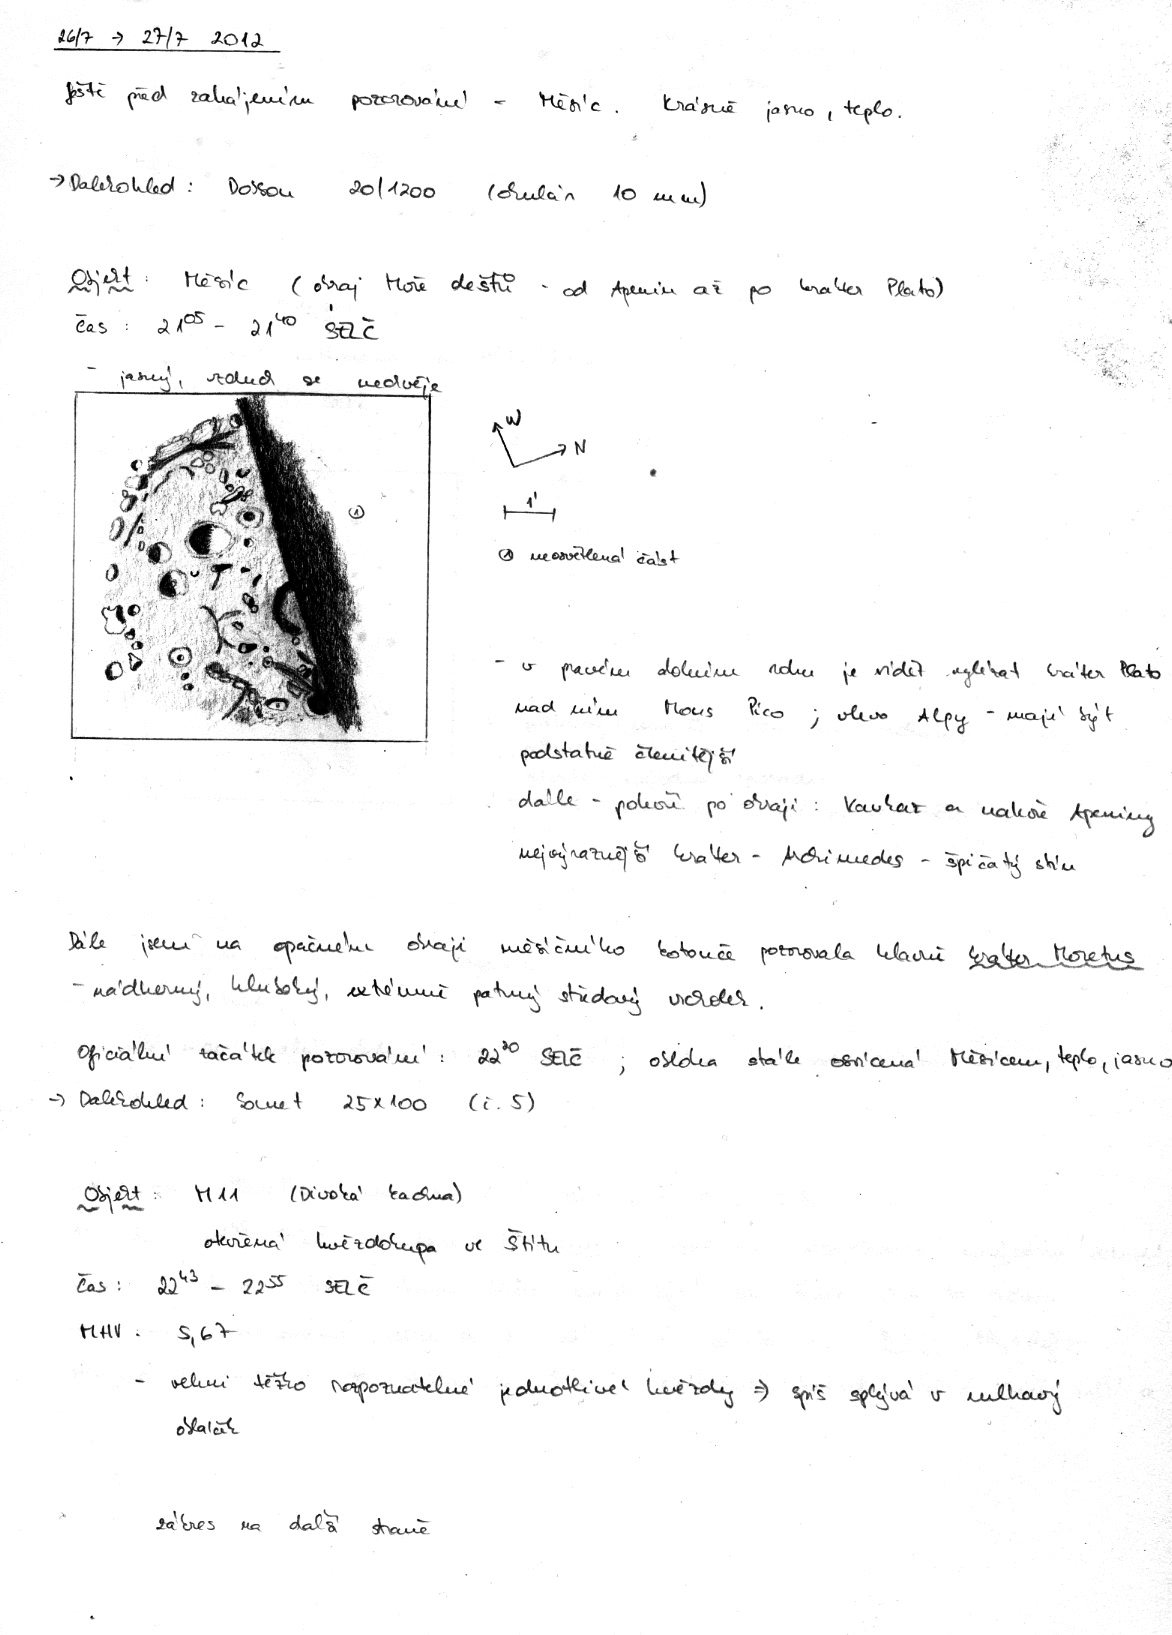 26/7 → 27/7 2012
Ještě před zahájením pozorování - Měsíc. Krásně jasno, teplo.
→ Dalekohled: Dobson 20/1200 (okulár 10 mm)
Objekt: Měsíc (okraj Moře dešťů - od Apenin až po kráter Plato)
čas: 21⁰⁵ - 21⁴⁰ SELČ
- jasný, vzduch se nechvěje
W
N
1'
①
① neosvětlená část
- v pravém dolním rohu je vidět vylézat kráter Plato
nad ním Mons Pico; vlevo Alpy - mají být
podstatně členitější
dále - pohoří po okraji: Kavkaz a nahoře Apeniny
nejvýraznější kráter - Archimedes - špičatý stín
Dále jsem na opačném okraji měsíčního kotouče pozorovala hlavně kráter Moretus
- nádherný, hluboký, extémně patrný středový vrcholek.
Oficiální začátek pozorování: 22³⁰ SELČ; obloha stále osvícená Měsícem, teplo, jasno
→ Dalekohled: Somet 25x100 (č. 5)
Objekt: M11 (Divoká kachna)
otevřená hvězdokupa ve Štítu
čas: 22⁴³ - 22⁵⁵ SELČ
MHV: 5,67
- velmi těžko rozpoznatelné jednotlivé hvězdy ⇒ spíš splývá v mlhavý
obláček
zákres na další straně